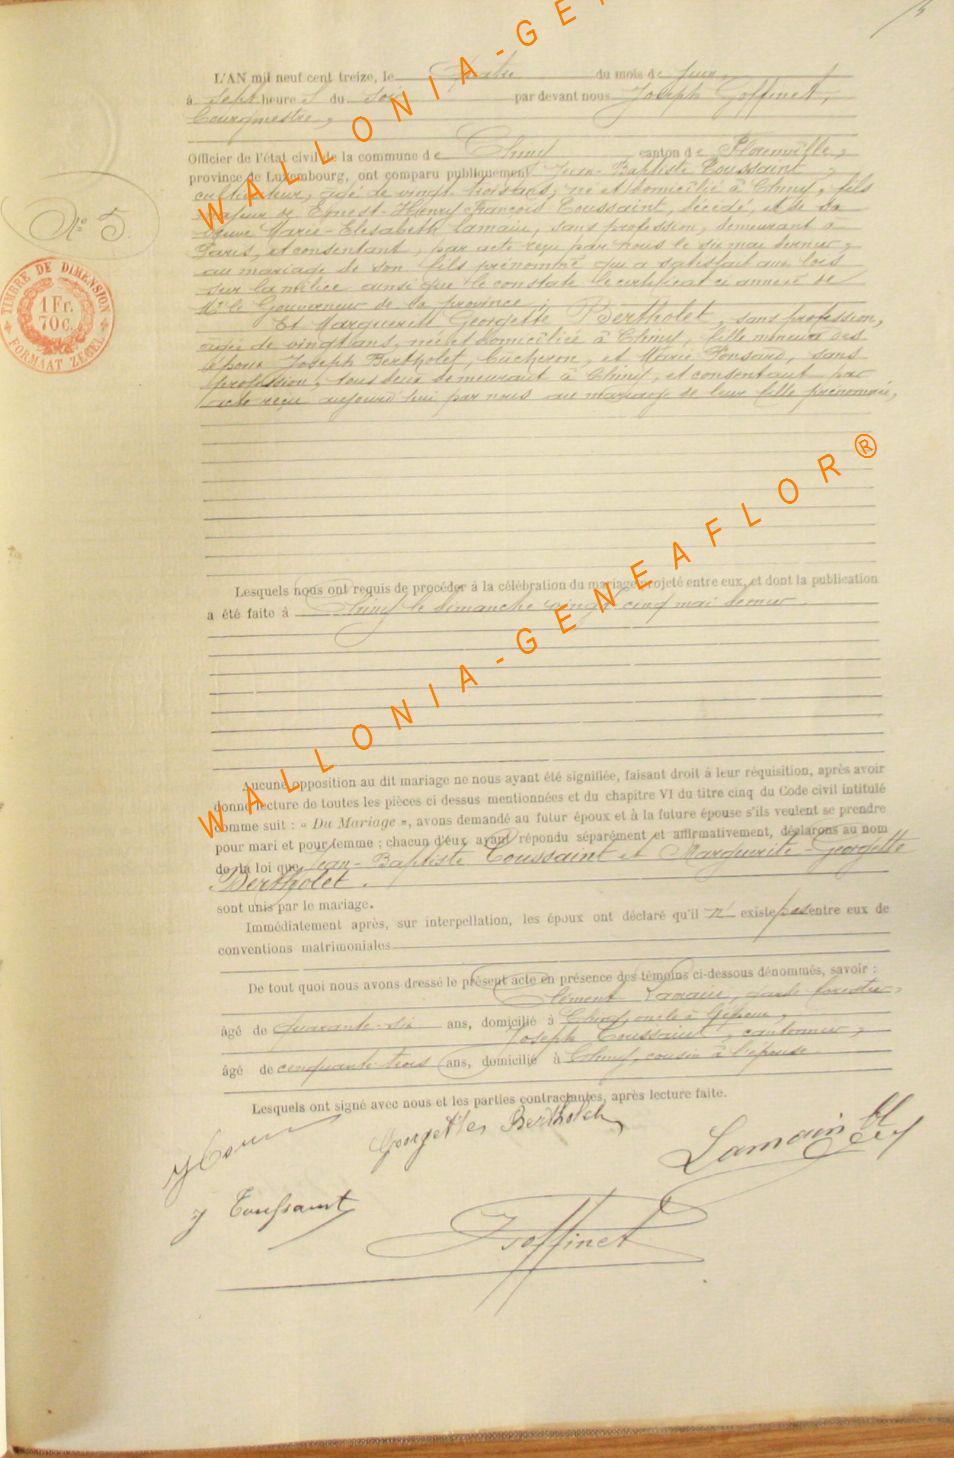 L'AN mil neuf cent treize, le quatre du mois de juin,
à sept heures du soir par devant nous Joseph Goffinet,
bourgmestre,
Officier de l'état civil de la commune de Chiny canton de Florenville,
province de Luxembourg, ont comparu publiquement Jean-Baptiste Toussaint,
cultivateur, agé de vingt trois ans, né et domicilié à Chiny, fils
majeur de Ernest-Henry-François Toussaint, décédé, et de sa
veuve Marie-Elisabeth Lamain, sans profession, demeurant à
Paris, et consentant, par acte reçu par nous le six mai dernier,
au mariage de son fils prénommé qui a satisfait aux lois
sur la milice ainsi que le constate le certificat ci annexé de
Mr le Gouverneur de la province;
Et Marguerite Georgette Bertholet, sans profession,
agée de vingt ans, née et domiciliée à Chiny, fille mineure des
époux Joseph Bertholet, bucheron, et Marie Ponsard, sans
profession, tous deux demeurant à Chiny, et consentant par
acte reçu aujourd'hui par nous au mariage de leur fille prénommée,
N° 5
TIMBRE DE DIMENSION
1 Fr.
70 C.
FORMAAT ZEGEL
Lesquels nous ont requis de procéder à la célébration du mariage projeté entre eux, et dont la publication
a été faite à Chiny le dimanche vingt cinq mai dernier.
Aucune opposition au dit mariage ne nous ayant été signifiée, faisant droit à leur réquisition, après avoir
donné lecture de toutes les pièces ci dessus mentionnées et du chapitre VI du titre cinq du Code civil intitulé
comme suit : « Du Mariage », avons demandé au futur époux et à la future épouse s'ils veulent se prendre
pour mari et pour femme ; chacun d'eux ayant répondu séparément et affirmativement, déclarons au nom
de la loi que Jean-Baptiste Toussaint et Marguerite-Georgette
Bertholet.
sont unis par le mariage.
Immédiatement après, sur interpellation, les époux ont déclaré qu'il n'existe pas entre eux de
conventions matrimoniales
De tout quoi nous avons dressé le présent acte en présence des témoins ci-dessous dénommés, savoir :
Clément Lamain, garde forestier,
âgé de quarante-six ans, domicilié à Chiny, oncle à l'époux,
Joseph Toussaint, cantonnier,
âgé de cinquante trois ans, domicilié à Chiny, cousin à l'épouse
Lesquels ont signé avec nous et les parties contractantes, après lecture faite.
Georgette Bertholet
Lamain
J Toussaint
J Goffinet
WALLONIA-GE
WALLONIA-GENEAFLOR®